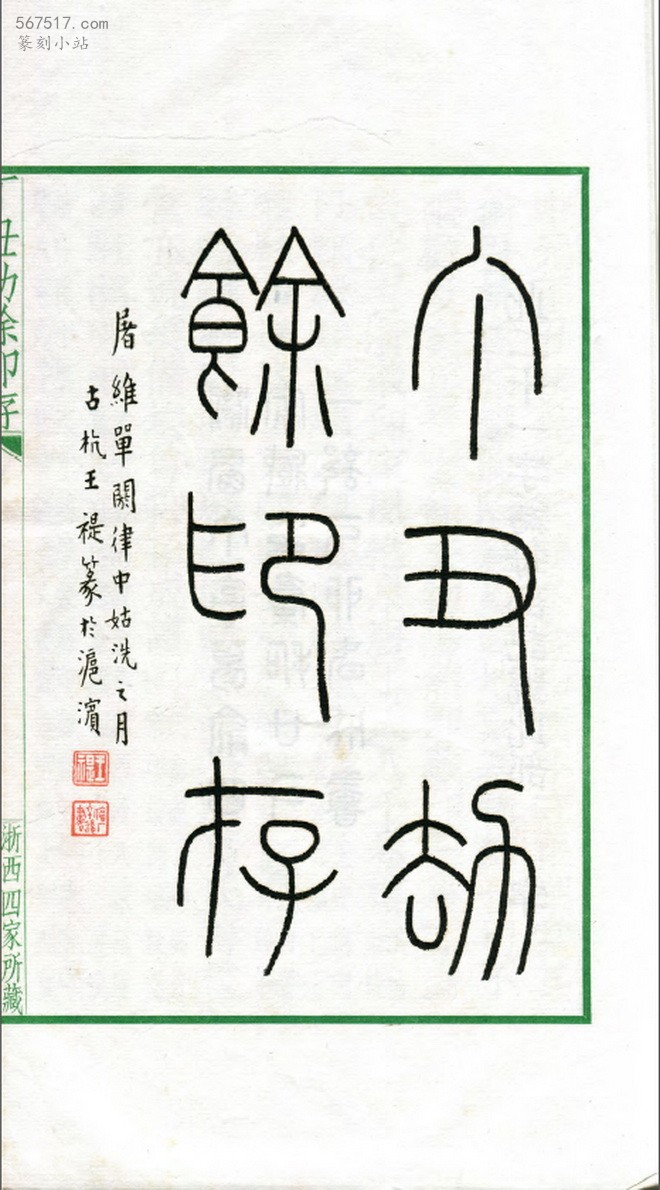 567517.com
篆刻小站
丁丑劫
餘印存
屠維單閼律中姑洗之月
古杭王禔篆於滬濱
王禔
丁丑劫餘印存
浙西四家所藏